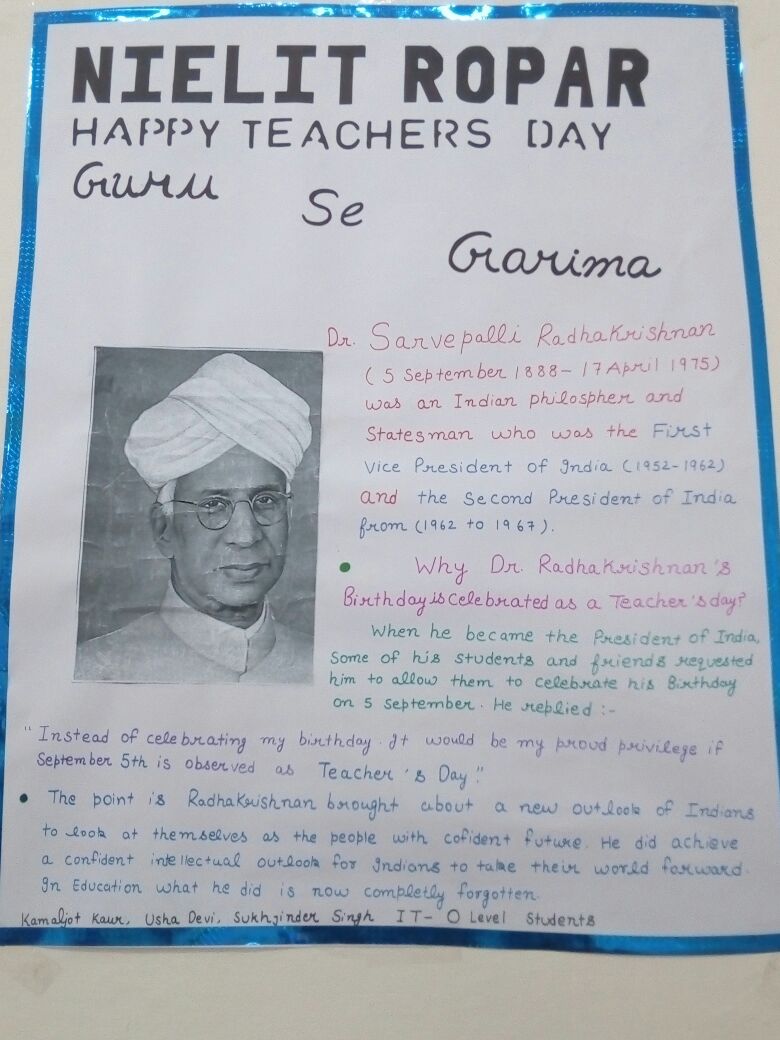 NIELIT ROPAR
HAPPY TEACHERS DAY
Guru
Se
Garima
Dr. Sarvepalli Radhakrishnan
( 5 September 1888- 17 April 1975)
was an Indian philospher and
Statesman who was the First
Vice President of India (1952-1962)
and the Second President of India
from (1962 to 1967).
• Why Dr. Radhakrishnan's
Birthday is celebrated as a Teacher's day?
When he became the President of India,
Some of his students and friends requested
him to allow them to celebrate his Birthday
on 5 September. He replied :-
"Instead of celebrating my birthday. It would be my proud privilege if
September 5th is observed as Teacher's Day."
• The point is Radhakrishnan brought about a new outlook of Indians
to look at themselves as the people with cofident future. He did achieve
a confident intellectual outlook for Indians to take their world forward.
In Education what he did is now completly forgotten.
Kamaljot Kaur, Usha Devi, Sukhjinder Singh IT- O Level Students